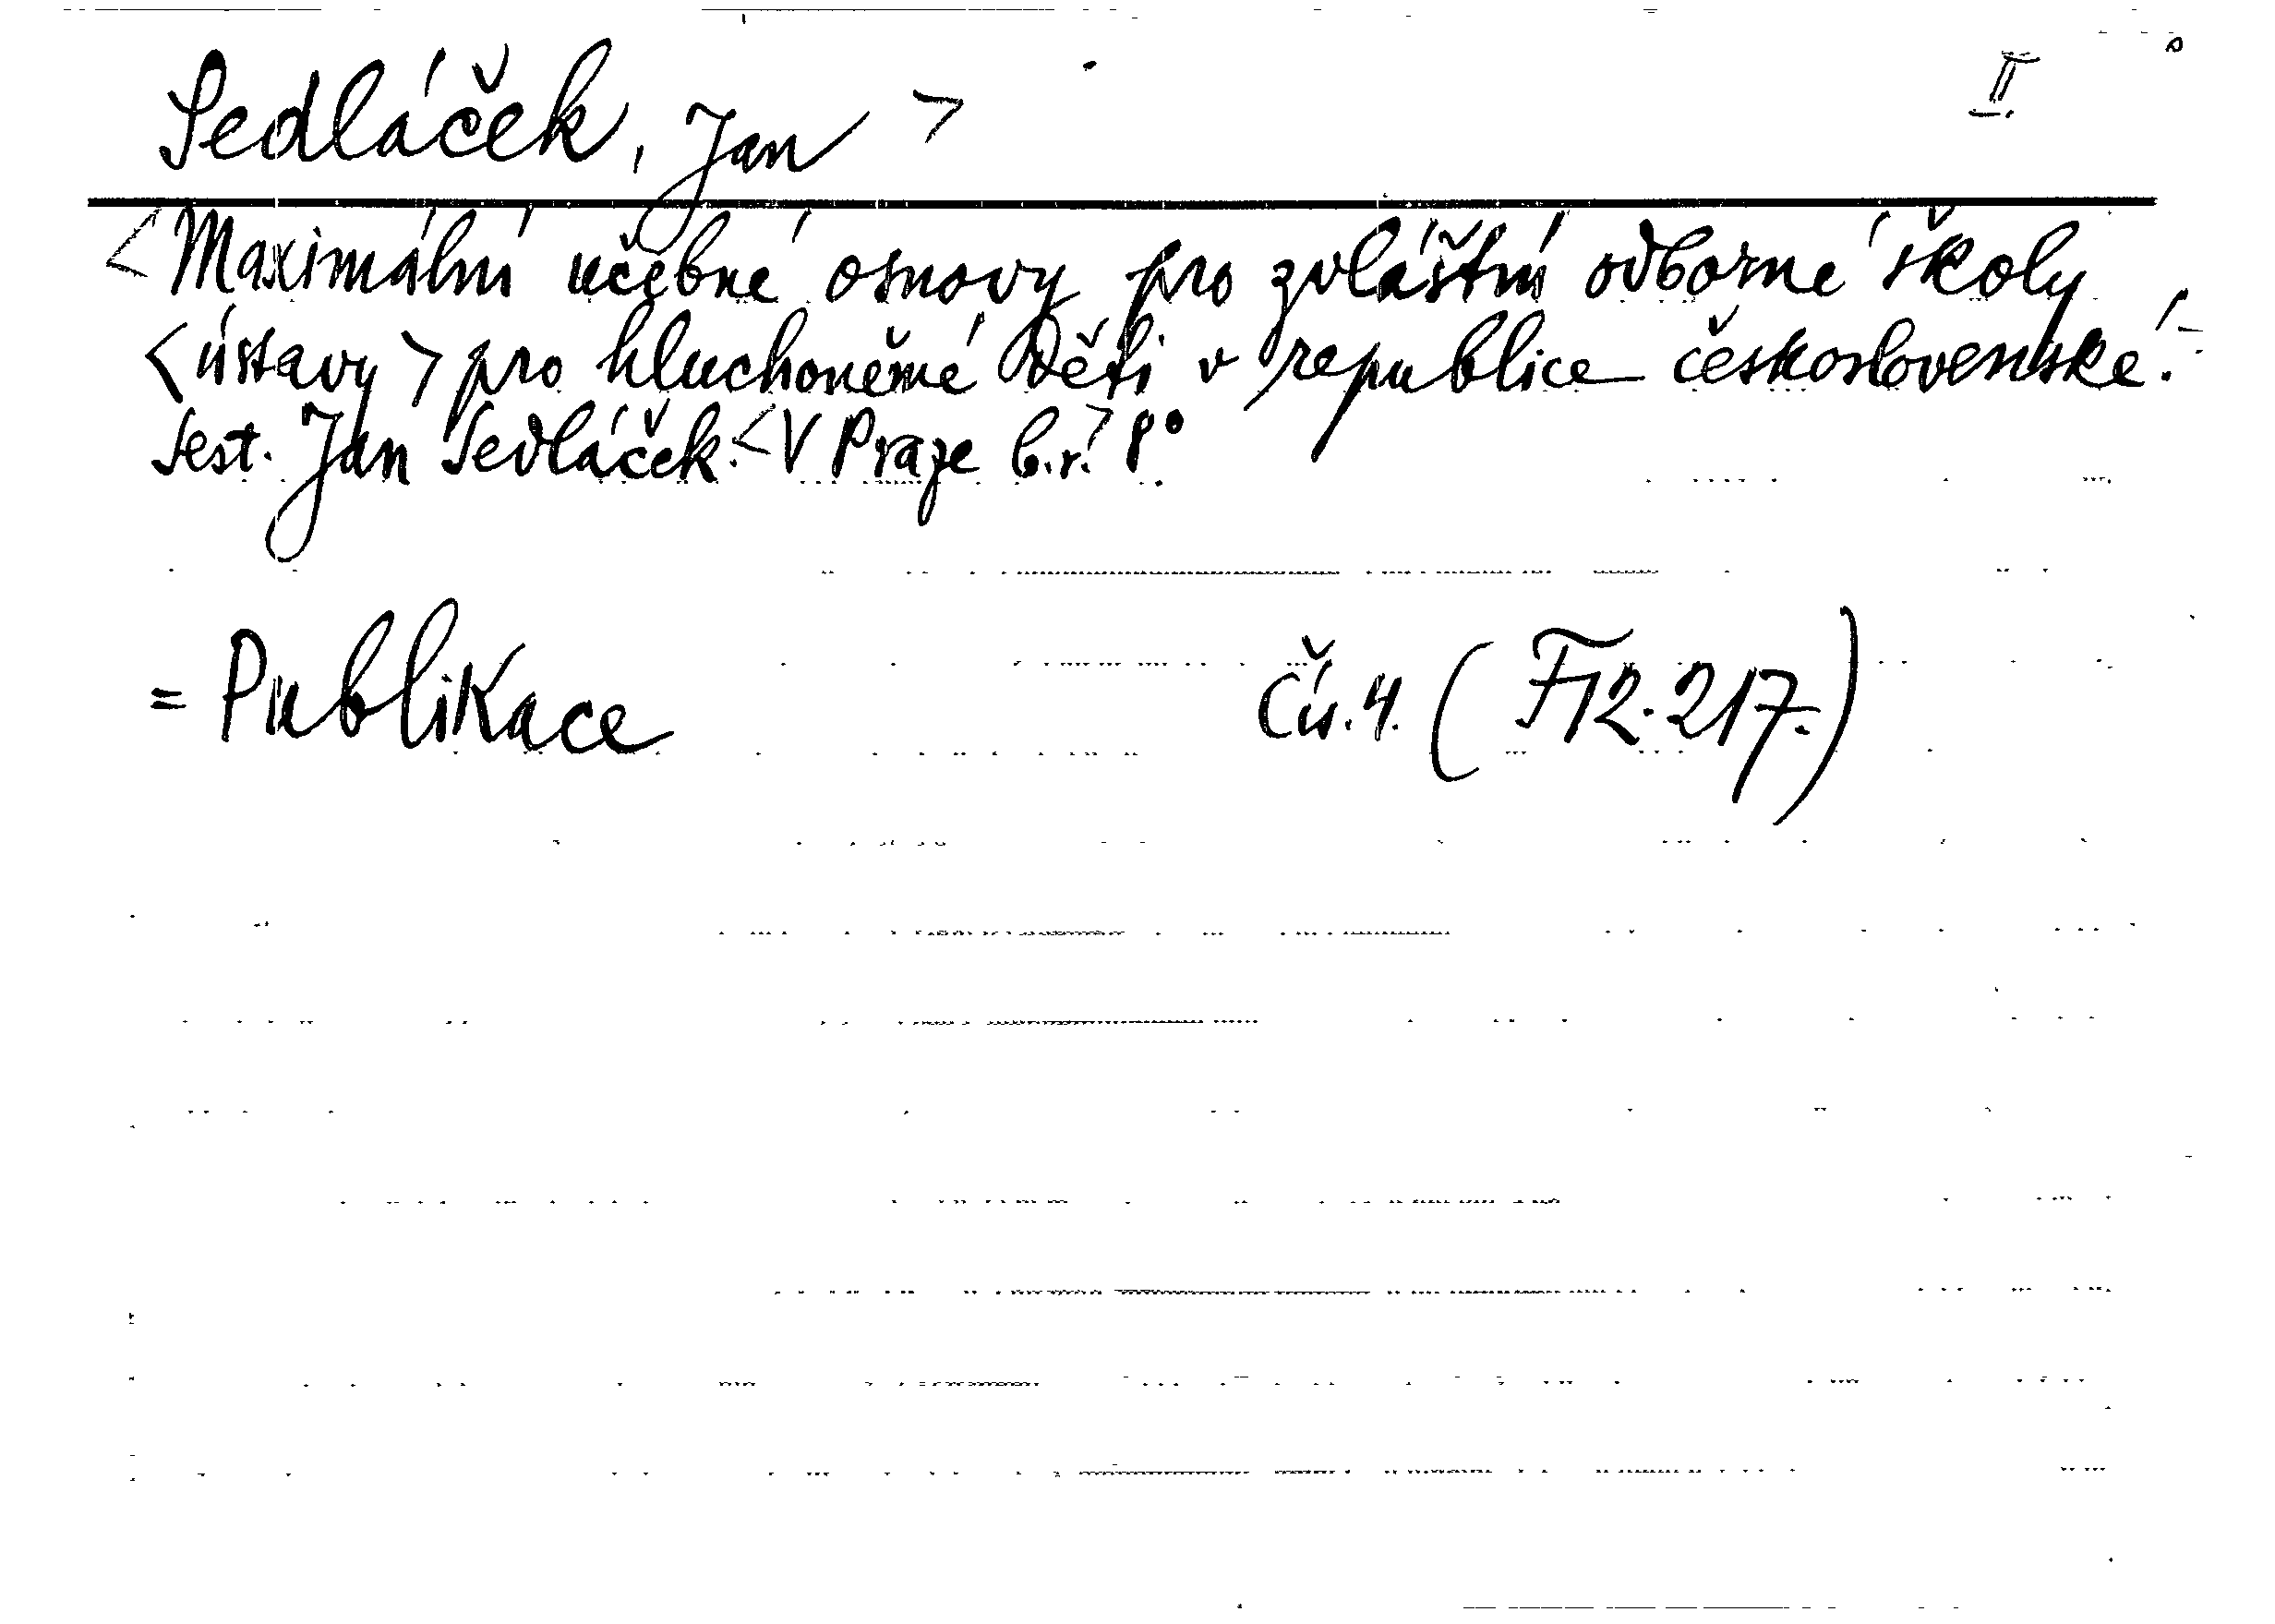 Sedláček, Jan > II.
<Maximální učebné osnovy pro zvláštní odborné školy
<ústavy> pro hluchoněmé děti v republice československé.-
Sest. Jan Sedláček. <V Praze b.r.> 8°.
= Publikace Čís. 4. (F12.217.)